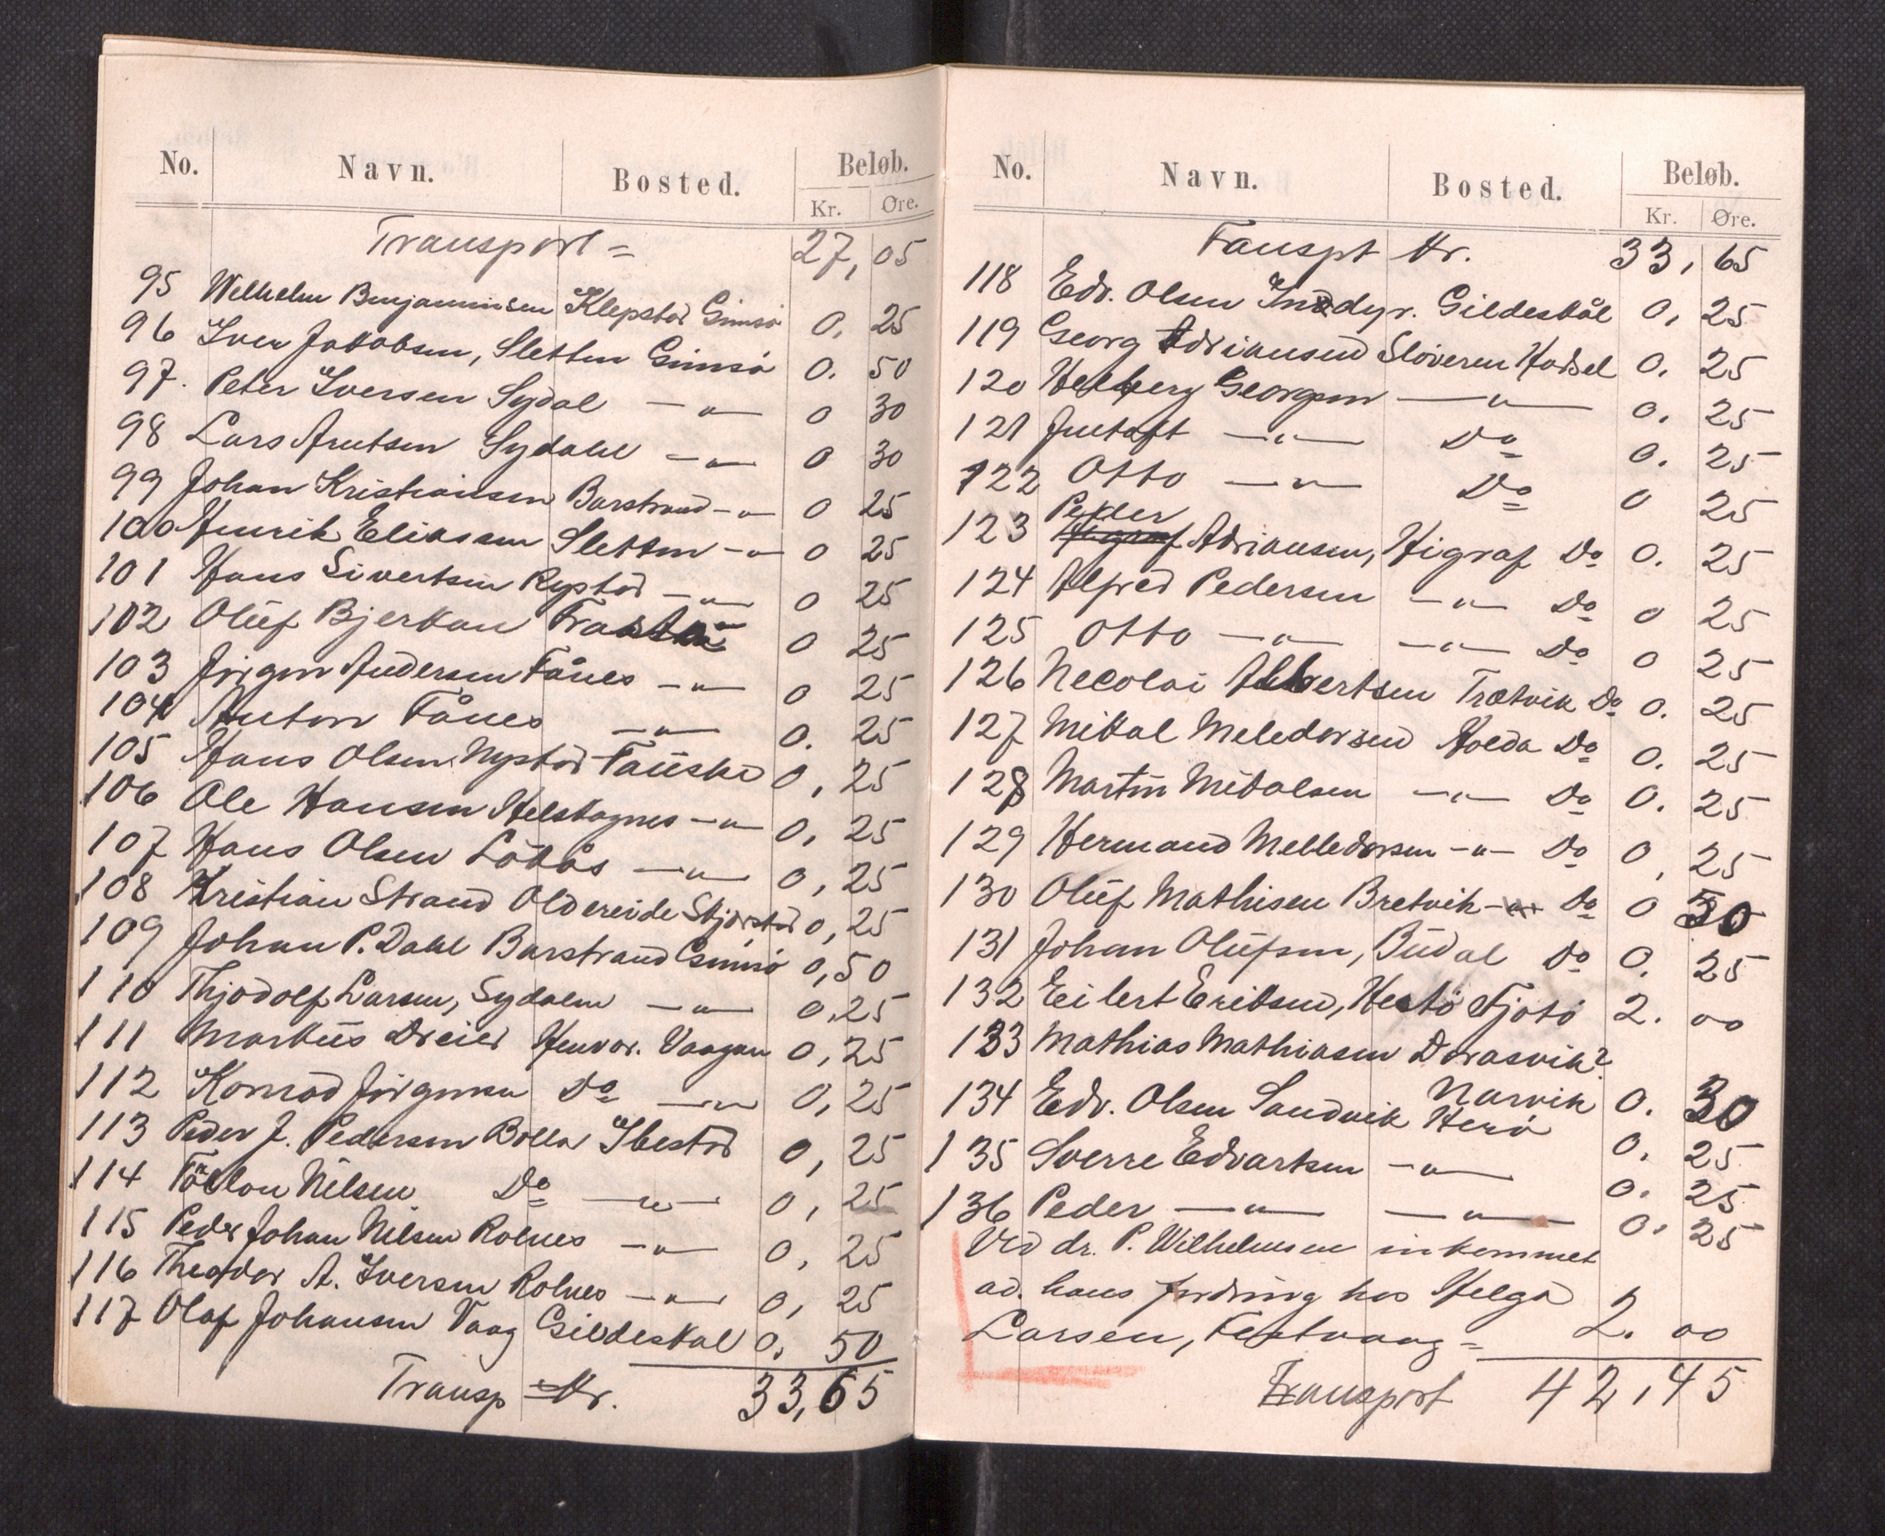 No. Navn. Bosted. Beløb.
Kr. Øre.
Transport = 27,05
95 Welhelm Benjaminsen Klepstad Gimsø 0. 25
96 Iver Jakobsen, Sletten Gimsø 0. 50
97. Peter Iversen Sydal — " — 0 30
98 Lars Arntsen Sydahl — " — 0 30
99 Johan Kristiansen Barstrand — " — 0 25
100 Henrik Eliassen Sletten — " — 0 25
101 Hans Sivertsen Rystad — " — 0 25
102 Oluf Bjerkan 0 25
103 Jørgen Andersen Fånes — " — 0 25
104 Anton Fånes — " — 0. 25
105 Hans Olsen Nystad Fauske 0, 25
106 Ole Hansen Helskagnes — " — 0, 25
107 Hans Olsen Løkås — " — 0, 25
108 Kristian Strand Oldereide Skjerstad 0, 25
109 Johan P. Dahl Barstrand Gimsø 0, 50
110 Thjodolf Larsen, Sydalen — " — 0,25
111 Markus Dreier Henvær. Vaagan 0, 25
112 Konrad Jørgensen Do — " — 0, 25
113 Peder J. Pedersen Bolla Ibestad 0, 25
114 Nilsen Do — " — 0, 25
115 Peder Johan Nilsen Rolnes — " — 0, 25
116 Theodor A. Iversen Rolnes — " — 0, 25
117 Olaf Johansen Vaag Gildeskal 0. 50
Transp = Kr. 33,65
No. Navn. Bosted. Beløb.
Kr. Øre.
Tanspt Kr. 33, 65
118 Edv. Olsen Inndyr. Gildeskål 0, 25
119 Georg Adriansen Sløveren Hadsel 0. 25
120 Helberg Georgsen — " — 0. 25
121 Gustaft — " — Do 0. 25
122 Otto — " — Do 0 25
Peder
123 Adriansen, Higraf Do 0. 25
124 Alfred Pedersen — " — Do 0 25
125 Otto — " — — " — Do 0 25
126 Necolai Albertsen Trætvik Do 0. 25
127 Mikal Meledorsen Holda Do 0. 25
128 Martin Mikalsen — " — Do 0. 25
129 Hermand Melledorsen — " — Do 0, 25
130 Oluf Mathisen Bretvik Do 0 50
131 Johan Olufsen, Budal Do 0. 25
132 Eilert Eriksen, Hestø Fjotø 2. 00
133 Mathias Mathiasen Dorasvik?
Narvik 0. 30
134 Edv. Olsen Sandvik Herø 0. 25
135 Sverre Edvartsen — " — 0. 25
136 Peder — " — — " — 0. 25
Ved dr. P. Wilhelmsen inkommet
ad. hans fordring hos Helga
Larsen, Festvaag = 2. 00
Transport 42,45